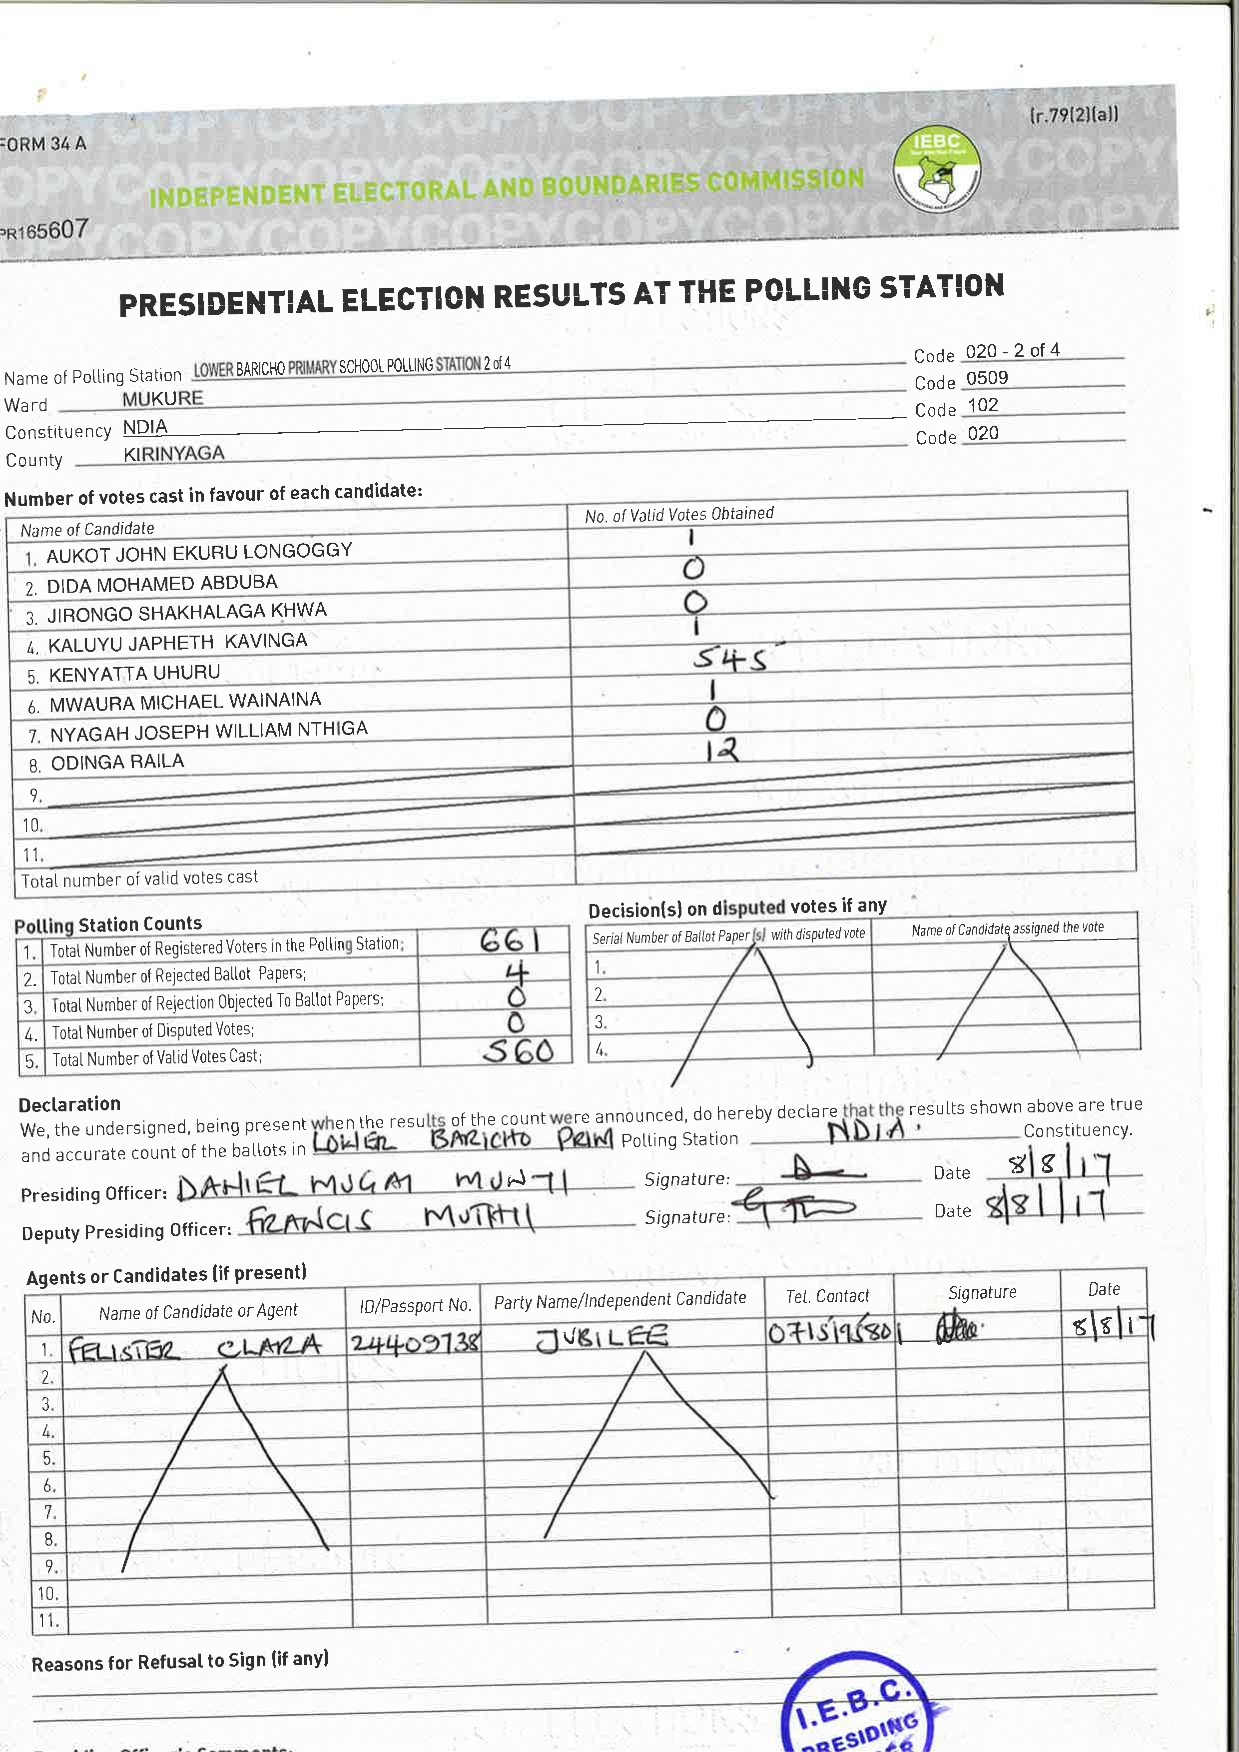 (r.79(2)(a))
FORM 34 A
IEBC
INDEPENDENT ELECTORAL AND BOUNDARIES COMMISSION
PR165607
PRESIDENTIAL ELECTION RESULTS AT THE POLLING STATION
Name of Polling Station LOWER BARICHO PRIMARY SCHOOL POLLING STATION 2 of 4 Code 020 - 2 of 4
Ward MUKURE Code 0509
Constituency NDIA Code 102
County KIRINYAGA Code 020
Number of votes cast in favour of each candidate:
Name of Candidate No. of Valid Votes Obtained
1. AUKOT JOHN EKURU LONGOGGY 1
2. DIDA MOHAMED ABDUBA 0
3. JIRONGO SHAKHALAGA KHWA 0
4. KALUYU JAPHETH KAVINGA 1
5. KENYATTA UHURU 545
6. MWAURA MICHAEL WAINAINA 1
7. NYAGAH JOSEPH WILLIAM NTHIGA 0
8. ODINGA RAILA 12
9.
10.
11.
Total number of valid votes cast
Polling Station Counts
1. Total Number of Registered Voters in the Polling Station; 661
2. Total Number of Rejected Ballot Papers; 4
3. Total Number of Rejection Objected To Ballot Papers; 0
4. Total Number of Disputed Votes; 0
5. Total Number of Valid Votes Cast; 560
Decision(s) on disputed votes if any
Serial Number of Ballot Paper (s) with disputed vote Name of Candidate assigned the vote
1.
2.
3.
4.
Declaration
We, the undersigned, being present when the results of the count were announced, do hereby declare that the results shown above are true
and accurate count of the ballots in LOWER BARICHO PRIM Polling Station NDIA. Constituency.
Presiding Officer: DANIEL MUGAI Signature: Date 8/8/17
Deputy Presiding Officer: FRANCIS MUTHII Signature: Date 8/8/17
Agents or Candidates (if present)
No. Name of Candidate or Agent ID/Passport No. Party Name/Independent Candidate Tel. Contact Signature Date
1. FELISTER CLARA 24409738 JUBILEE 8/8/17
2.
3.
4.
5.
6.
7.
8.
9.
10.
11.
Reasons for Refusal to Sign (if any)
I.E.B.C.
PRESIDING